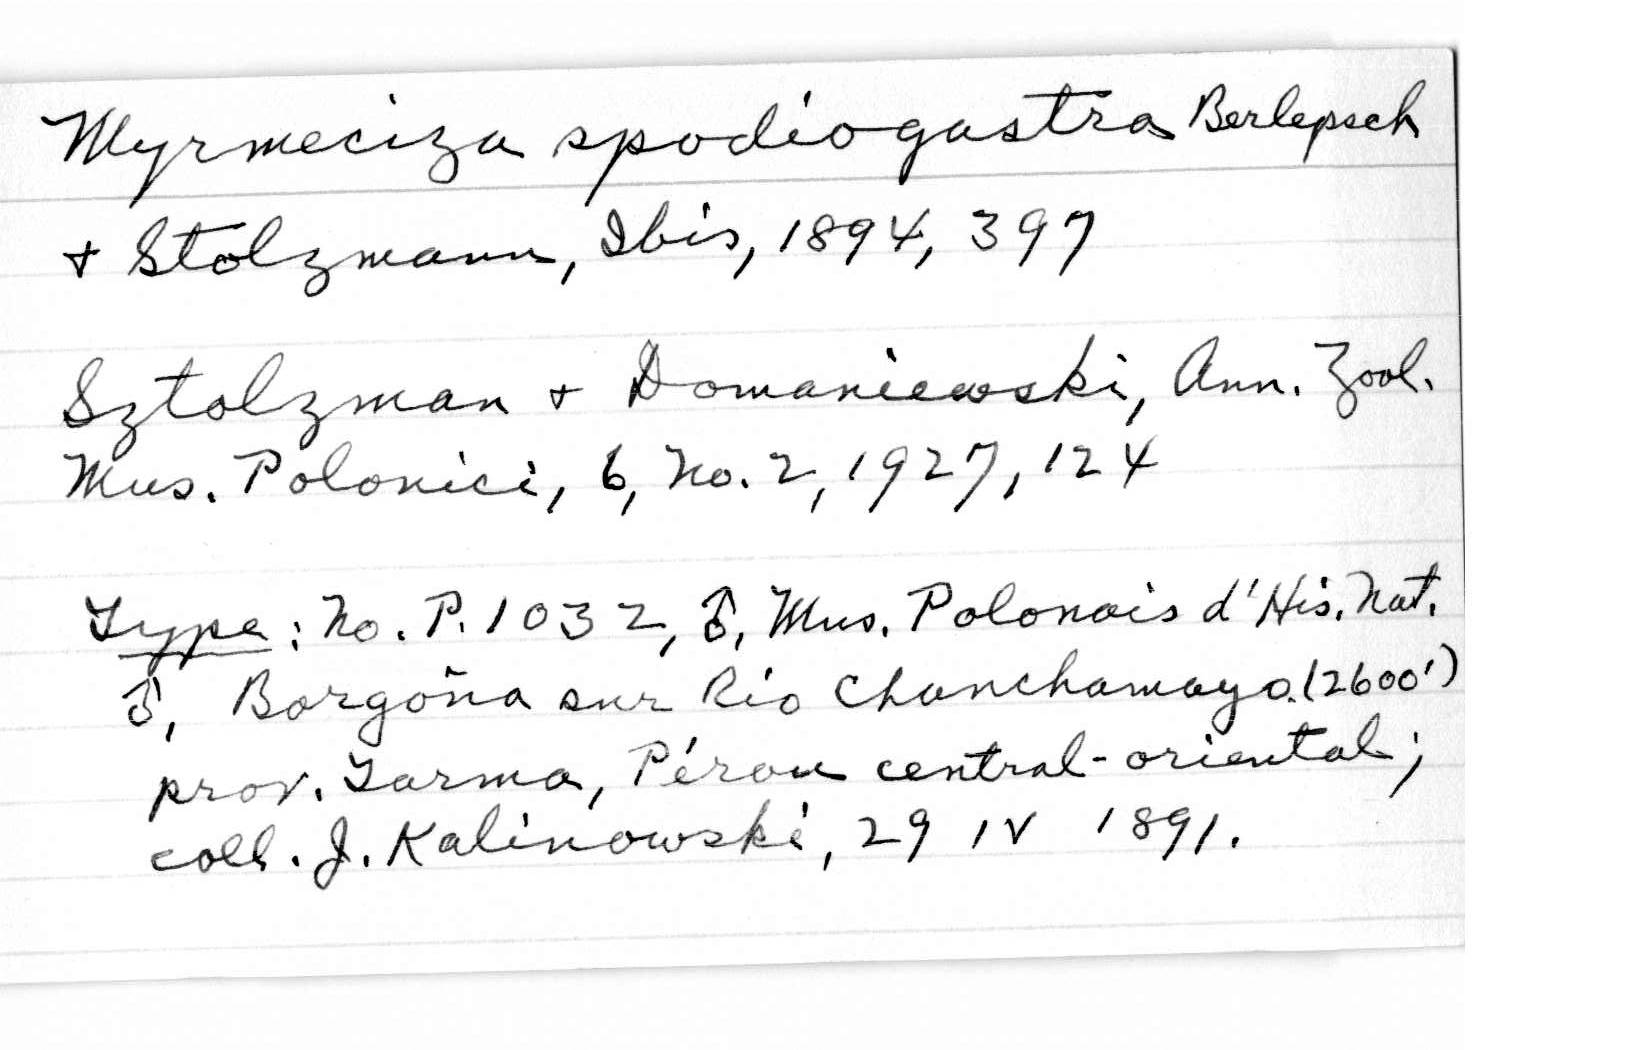 Myrmeciza spodiogastra Berlepsch
+ Stolzmann, Ibis, 1894, 397
Sztolzman + Domaniewski, Ann. Zool.
Mus. Polonici, 6, No. 2, 1927, 124
Type: No. P. 1032, ♂, Mus. Polonais d'His. Nat.
♂, Borgoña sur Rio Chanchamayo (2600')
prov. Tarma, Pérou central-oriental;
coll. J. Kalinowski, 29 IV 1891.